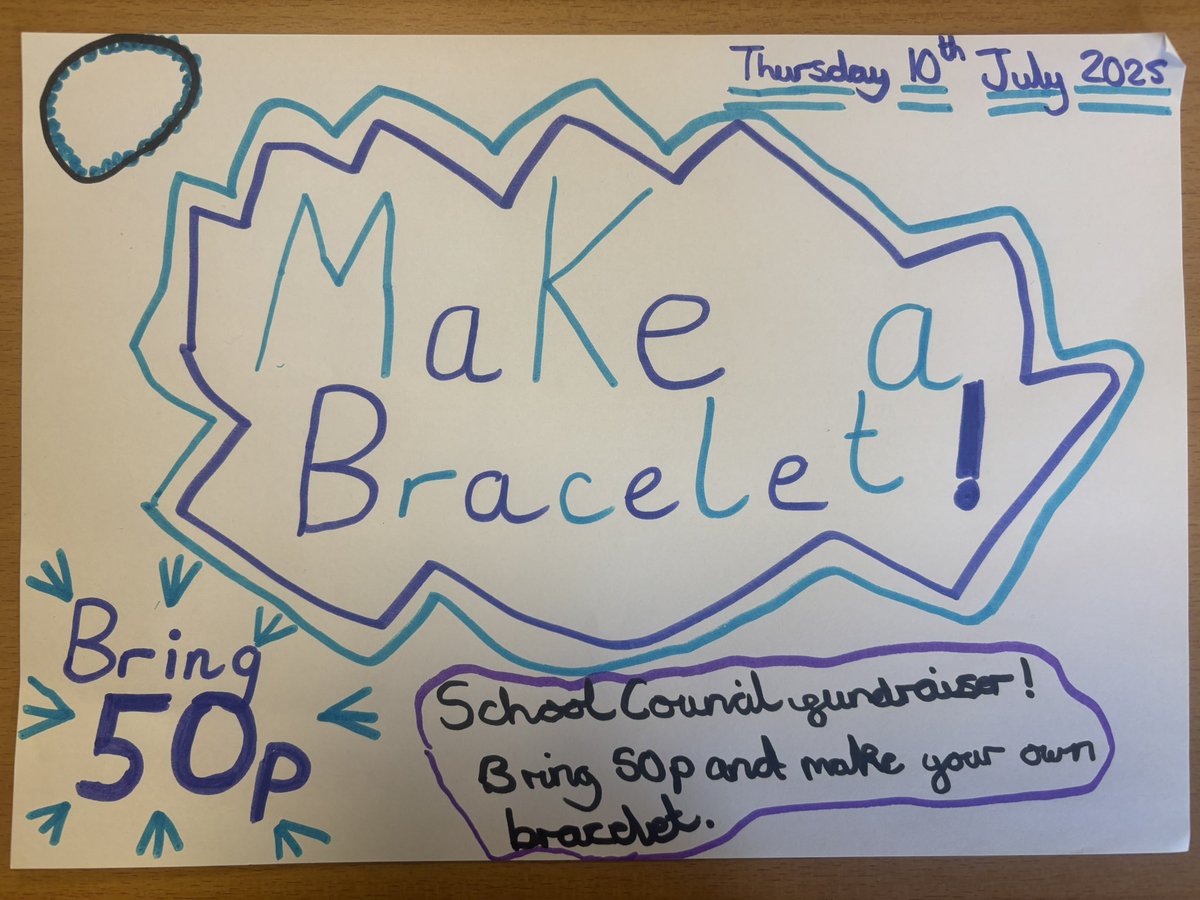 Thursday 10th July 2025
Make a
Bracelet!
Bring
50p
School Council fundraiser!
Bring 50p and make your own
bracelet.